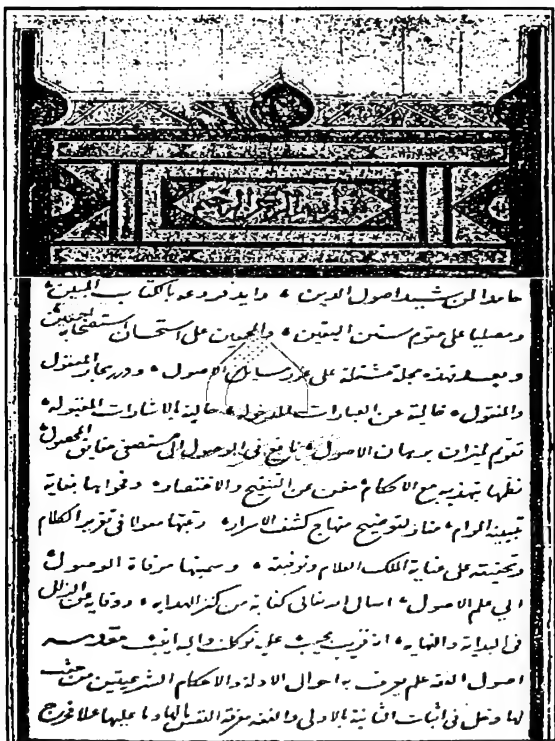 بسم الله الرحمن الرحيم
حامدا لمن شيد اصول الدين ، وايد فروعه بالكتاب المبين
ومصليا على متوم سنن اليقين ، والمجمعين على استحسان استصحابه اجمعين
وبعد فهذه مجلة مشتملة على غرر مسايل الاصول ، ودرر بحار المعقول
والمنقول ، خالية عن العبارات المدخولة ، حالية بالاشارات المقبولة ،
تقويم لميزان برهان الاصول ، نافع في الوصول الى مستصفى حقايق المحصول
نظمها تهذيب مع الاحكام مغن عن التنقيح والاقتصار ، وفحوايها بغاية
تبيينه المرام ، منار لتوضيح منهاج كشف الاسرار ، رتبتها معولا في تقرير الكلام
وتحقيقه على عناية الملك العلام وتوفيقه ، وسميتها مرقاة الوصول
الى علم الاصول ، اسال الله تعالى كفاية من كنز الهداية ، ووقاية عن الزلل
في البداية والنهاية ، انه قريب مجيب عليه توكلت واليه انيب مقدمه
اصول الفقه علم يعرف به احوال الادلة والاحكام الشرعيتين من حيث
لها دخل في اثبات الثانية بالاولى والفقه معرفة النفس مالها وما عليها عملا فخرج